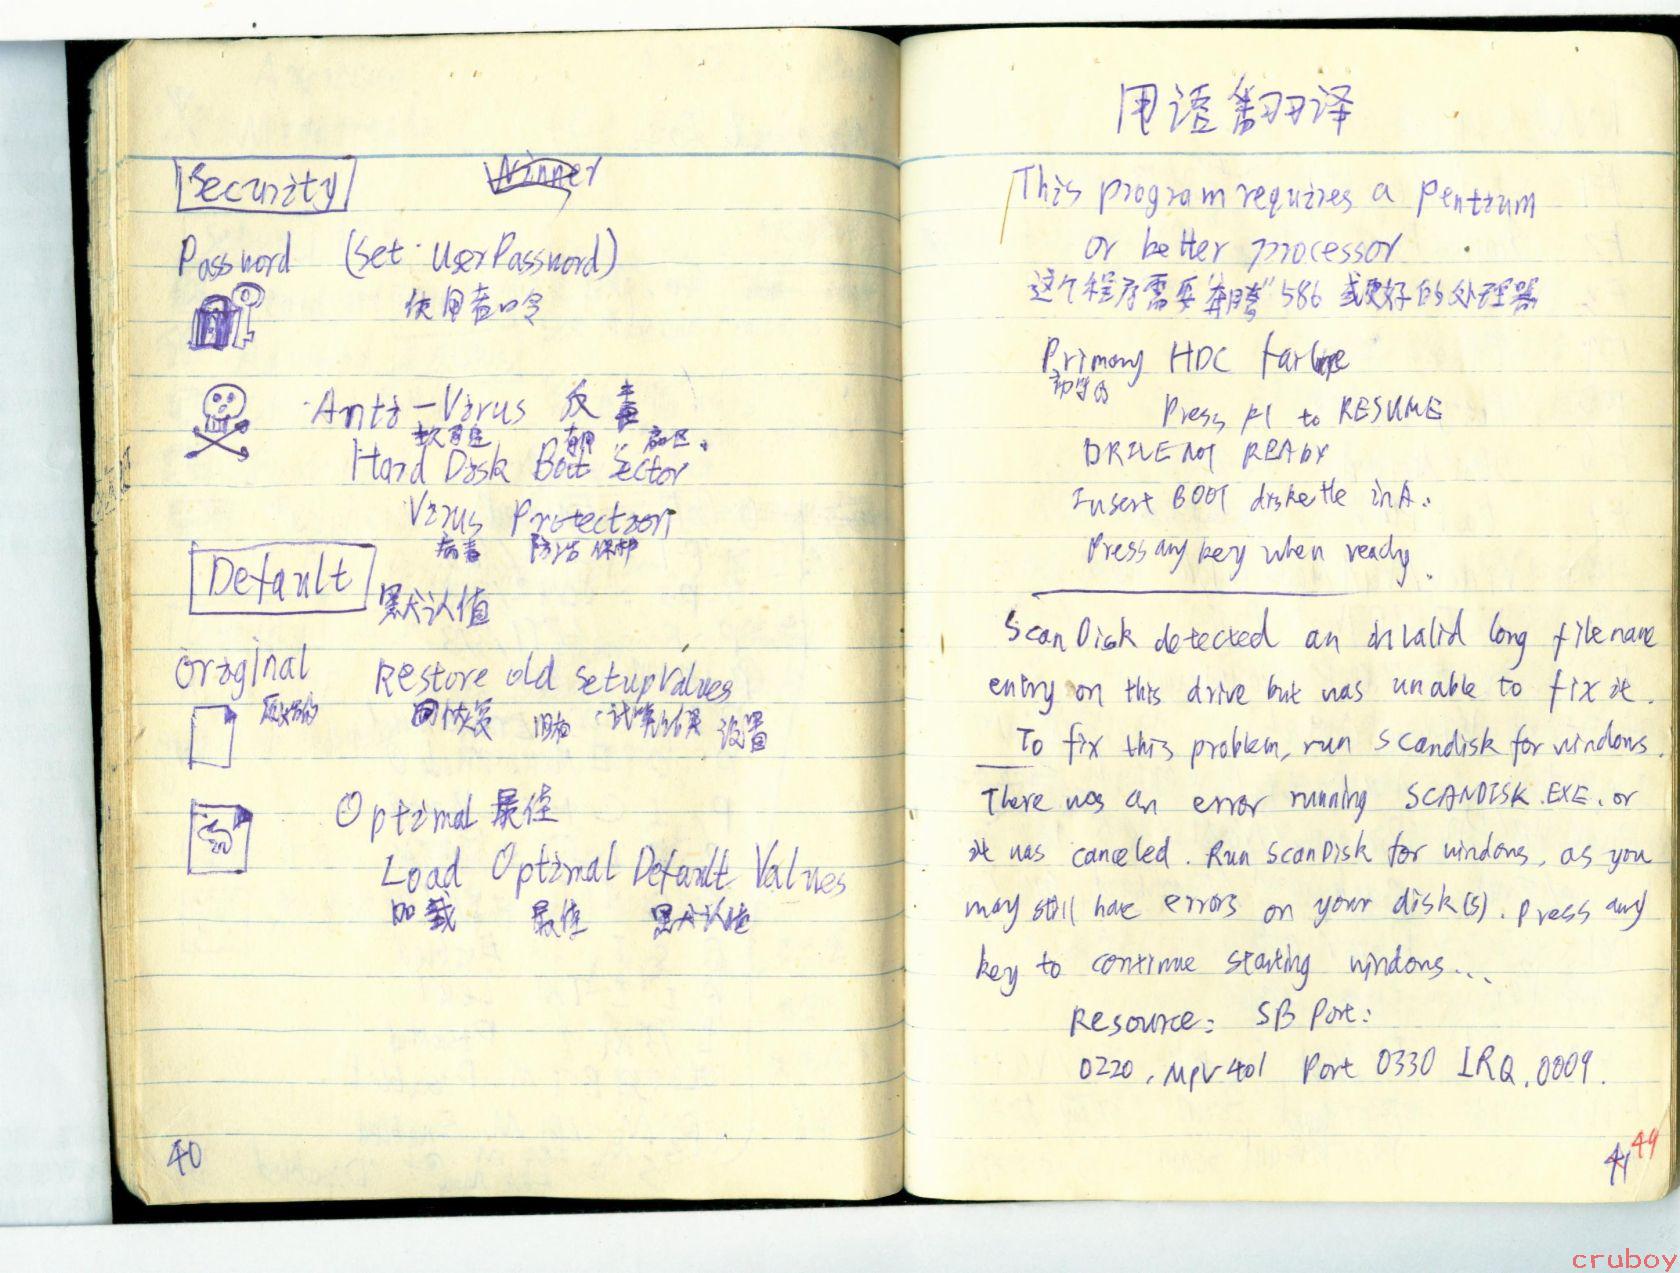 Security
Password (Set UserPassword)
使用者口令
Anti-Virus 反毒
软硬
Hard Disk Boot Sector
Virus Protection
病毒 防治 保护
Default
默认值
Original Restore old SetupValues
原始的 回恢复 旧有 设置
Optimal 最佳
Load Optimal Default Values
加载 最佳 默认值
40
用语翻译
This program requires a Pentium
or better processor
这个程序需要"奔腾"586 或更好的处理器
Primary HDC failure
Press F1 to RESUME
DRIVE NOT READY
Insert BOOT diskette in A:
Press any key when ready.
ScanDisk detected an invalid long filename
entry on this drive but was unable to fix it.
To fix this problem, run Scandisk for windows.
There was an error running SCANDISK.EXE. or
it was canceled. Run ScanDisk for windows, as you
may still have errors on your disk(s). Press any
key to continue starting windows...
Resource: SB Port:
0220, MPU401 Port 0330 IRQ.0009.
41 49
cruboy